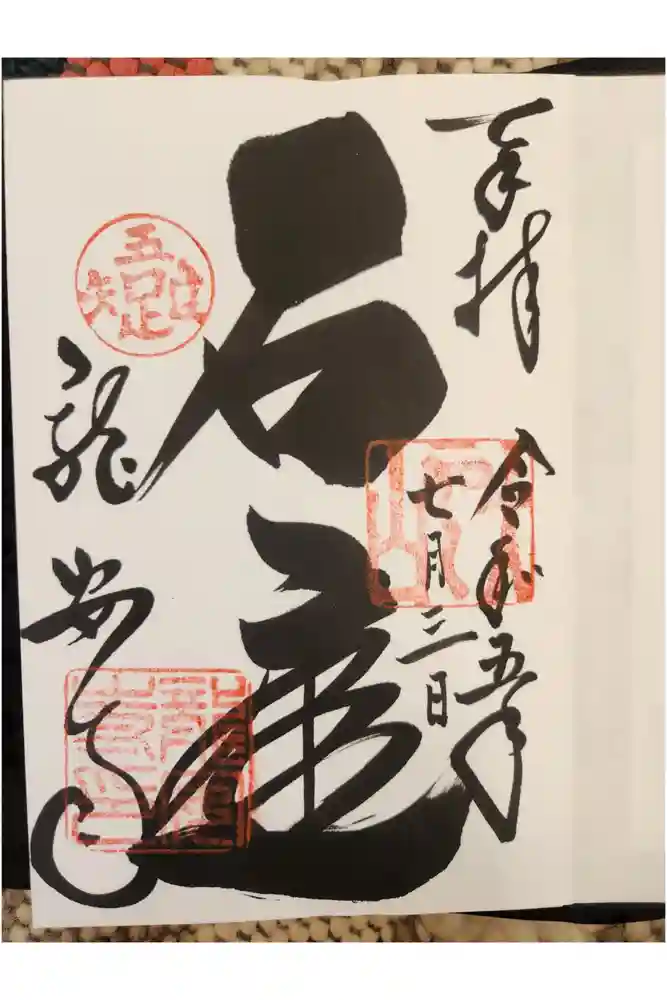 奉拝
令和五年
七月三日
石庭
吾唯足知
龍安寺